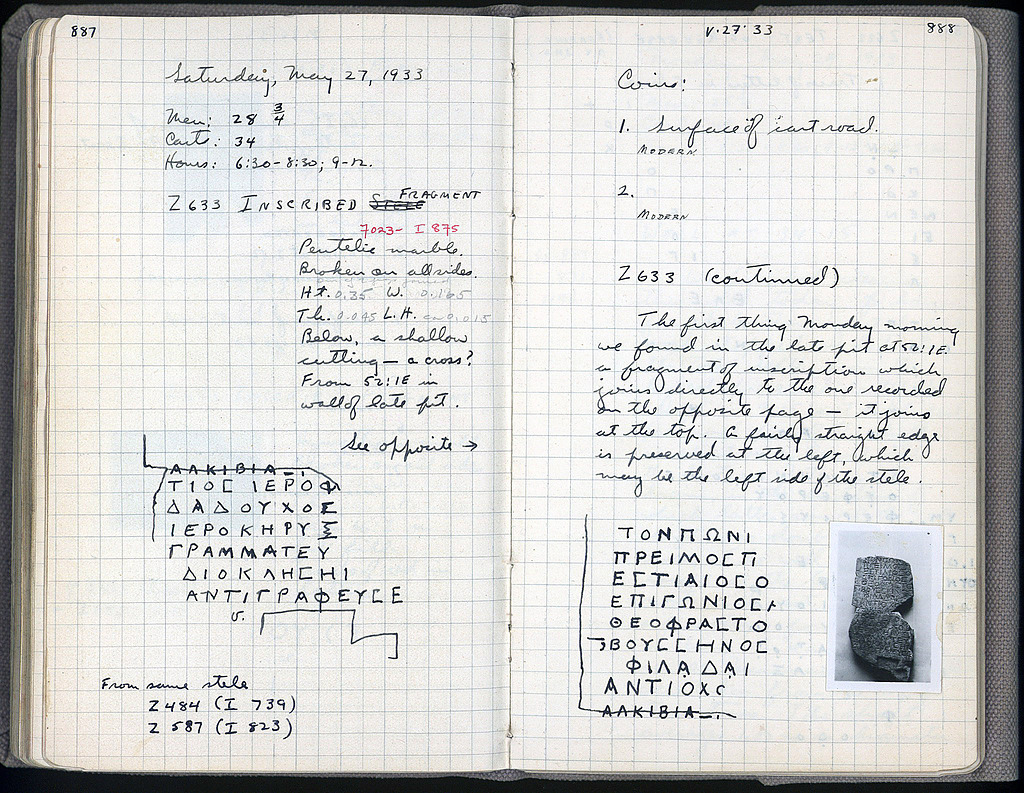 887
Saturday, May 27, 1933
Men: 28 3/4
Carts: 34
Hours: 6:30-8:30; 9-12.
Z 633 INSCRIBED STELE FRAGMENT
7023- I 875
Pentelic marble.
Broken on all sides.
Ht. 0.35 W. 0.165
Th. 0.045 L.H. ca 0.015
Below, a shallow
cutting — a cross?
From 52:1E in
wall of late pit.
See opposite →
ΑΛΚΙΒΙΑ
ΤΙΟΣ ΙΕΡΟΦ
ΔΑΔΟΥΧΟΣ
ΙΕΡΟΚΗΡΥΞ
ΓΡΑΜΜΑΤΕΥ
ΔΙΟΚΛΗΣΗΙ
ΑΝΤΙΓΡΑΦΕΥΣΕ
v.
From same stele
Z 484 (I 739)
Z 587 (I 823)
V·27·33
888
Coins:
1. Surface of cart road.
MODERN
2.
MODERN
Z 633 (continued)
The first thing Monday morning
we found in the late pit at 52:1E.
a fragment of inscription which
joins directly to the one recorded
on the opposite page — it joins
at the top. A fairly straight edge
is preserved at the left, which
may be the left side of the stele.
ΤΟΝΠΩΝΙ
ΠΡΕΙΜΟΣΠ
ΕΣΤΙΑΙΟΣΟ
ΕΠΙΓΩΝΙΟΣ
ΘΕΟΦΡΑΣΤΟ
ΒΟΥΣΣΗΝΟΣ
ΦΙΛΑΔΑΙ
ΑΝΤΙΟΧ
ΑΛΚΙΒΙΑ